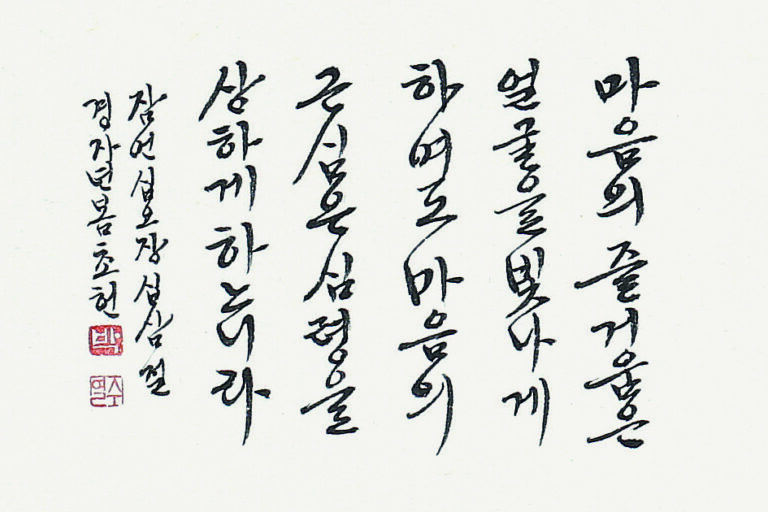 마음의 즐거움은
얼굴을 빛나게
하여도 마음의
근심은 심령을
상하게 하느니라
잠언 십오장 십삼절
경자년 봄 초헌
박